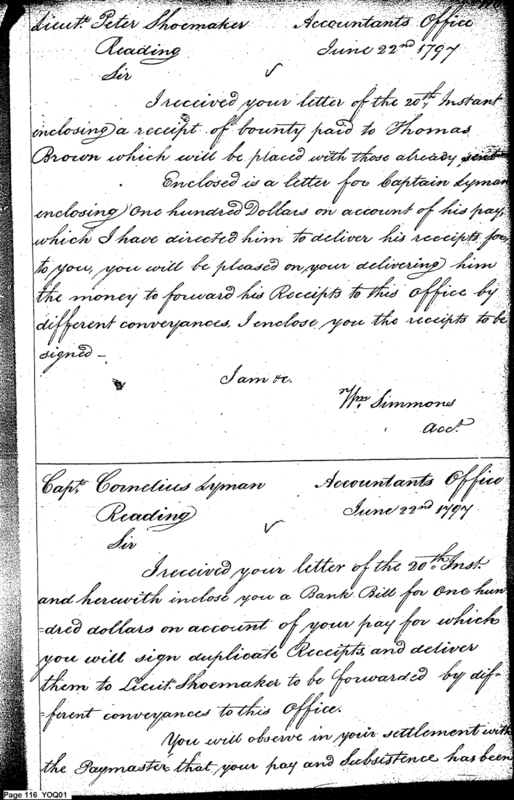 Lieut. Peter Shoemaker Accountants Office
Reading June 22nd 1797
Sir
I received your letter of the 20th Instant
enclosing a receipt of bounty paid to Thomas
Brown which will be placed with those already sent
Enclosed is a letter for Captain Lyman
enclosing One hundred Dollars on account of his pay,
which I have directed him to deliver his receipts for
to you, you will be pleased on your delivering him
the money to forward his Receipts to this Office by
different conveyances, I enclose you the receipts to be
signed -
I am &c.
Wm. Simmons
Acct.
Capt. Cornelius Lyman Accountants Office
Reading June 22nd 1797
Sir
I received your letter of the 20th Inst.
and herewith inclose you a Bank Bill for One hun
=dred dollars on account of your pay for which
you will sign duplicate Receipts, and deliver
them to Lieut. Shoemaker to be forwarded by dif=
=ferent conveyances to this Office.
You will observe in your settlement with
the Paymaster that, your pay and Subsistence has been
Page 116 YOQ01